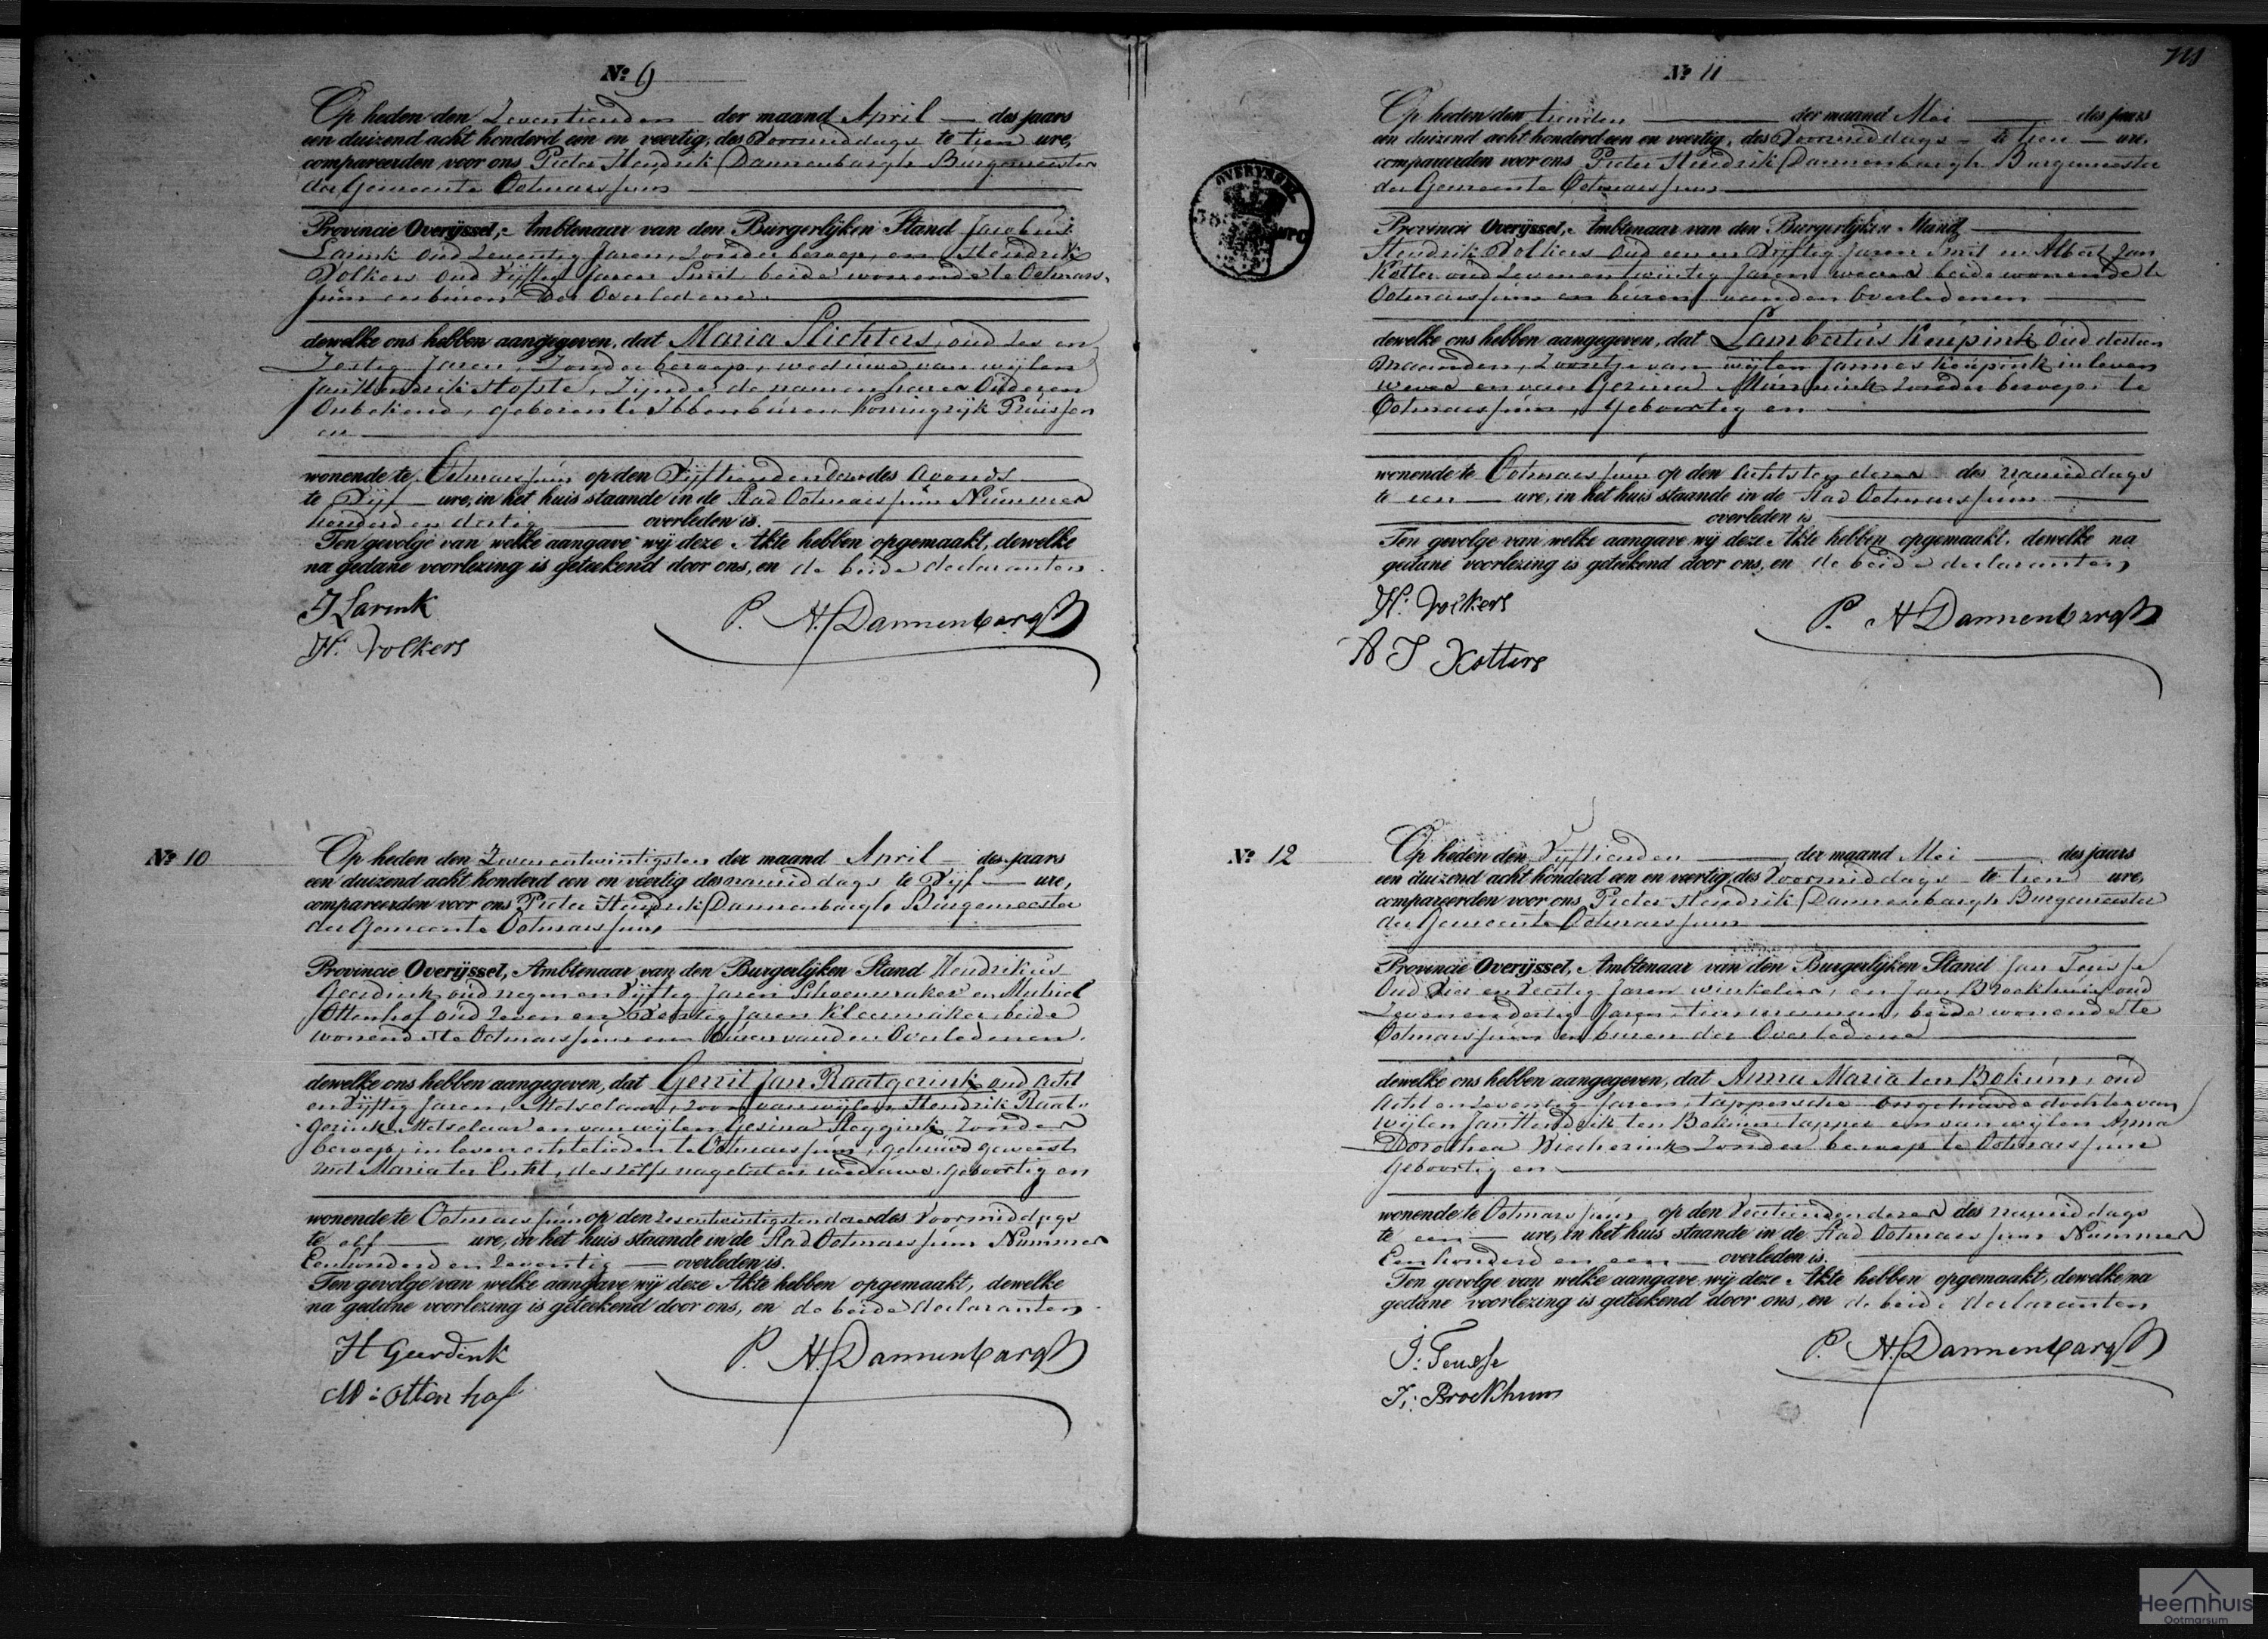 № 9
Op heden den Zeventienden der maand April des jaars
een duizend acht honderd een en veertig, des Voormiddags te tien ure,
compareerden voor ons Pieter Hendrik Dannenbargh Burgemeester
der Gemeente Ootmarssum
Provincie Overijssel, Ambtenaar van den Burgerlijken Stand Jacobus
Larink oud Zeventig Jaren, Zonder beroep, en Hendrik
Volkers oud Vijftig Jaren Smit beide wonende te Ootmars-
sum en buren der Overledene
dewelke ons hebben aangegeven, dat Maria Slichters, oud Zes en
Zestig Jaren, Zonder beroep, weduwe van wijlen
Jan Hendrik Hofste, Zijnde de namen harer Ouderen
Onbekend, geboren te Ibbenburen Koningrijk Pruissen
en
wonende te Ootmarssum op den Vijftienden dezer des avonds
te Vijf ure, in het huis staande in de Stad Ootmarssum Nummer
honderd en dertig overleden is.
Ten gevolge van welke aangave wij deze Akte hebben opgemaakt, dewelke
na gedane voorlezing is geteekend door ons, en de beide declaranten.
J Larink
H: Volkers
P. H. Dannenbargh
№ 10
Op heden den Zevenentwintigsten der maand April des jaars
een duizend acht honderd een en veertig des namiddags te Vijf ure,
compareerden voor ons Pieter Hendrik Dannenbargh Burgemeester
der Gemeente Ootmarssum
Provincie Overijssel, Ambtenaar van den Burgerlijken Stand Hendrikus
Geerdink oud negen en Vijftig Jaren Schoenmaker en Michiel
Ottenhof oud Zeven en Veertig Jaren Kleermaker, beide
wonende te Ootmarssum en buren van den Overledenen.
dewelke ons hebben aangegeven, dat Gerrit Jan Raatgerink oud acht
en Vijftig Jaren, Metselaar, zoon van wijlen Hendrik Raat-
gerink Metselaar en van wijlen Gesina Steggink Zonder
beroep, in leven echtelieden te Ootmarssum, gehuwd geweest
met Maria ter Linkt, deszelfs nagelaten weduwe. Geboortig en
wonende te Ootmarssum op den zesentwintigsten dezer des Voormiddags
te elf ure, in het huis staande in de Stad Ootmarssum Nummer
Eenhonderd en Zeventig overleden is.
Ten gevolge van welke aangave wij deze Akte hebben opgemaakt, dewelke
na gedane voorlezing is geteekend door ons, en de beide declaranten.
H Geerdink
M: Ottenhof
P. H. Dannenbargh
№ 11
Op heden den tienden der maand Mei des jaars
een duizend acht honderd een en veertig, des Voormiddags te tien ure,
compareerden voor ons Pieter Hendrik Dannenbargh Burgemeester
der Gemeente Ootmarssum
OVERYSSEL
Provincie Overijssel, Ambtenaar van den Burgerlijken Stand
Hendrik Volkers oud een en Vijftig Jaren Smit en Albert Jan
Kotter oud Zevenentwintig Jaren wever beide wonende te
Ootmarssum en buren van den Overledenen
dewelke ons hebben aangegeven, dat Lambertus Keupink oud dertien
maanden, Zoontje van wijlen Jannes Keupink in leven
wever en van Gezina Zonder beroep te
Ootmarssum, Geboortig en
wonende te Ootmarssum op den Achtsten dezer des namiddags
te een ure, in het huis staande in de Stad Ootmarssum
overleden is
Ten gevolge van welke aangave wij deze Akte hebben opgemaakt, dewelke na
gedane voorlezing is geteekend door ons, en de beide declaranten
H: Volkers
A J Kotters
P. H Dannenbargh
№ 12
Op heden den Vijftienden der maand Mei des jaars
een duizend acht honderd een en veertig des Voormiddags te tien ure,
compareerden voor ons Pieter Hendrik Dannenbargh Burgemeester
der Gemeente Ootmarssum
Provincie Overijssel, Ambtenaar van den Burgerlijken Stand Jan Teusse
Oud Vier en Veertig Jaren winkelier, en Jan Broekhuis oud
Zevenendertig Jaren, timmerman, beide wonende te
Ootmarssum en buren der Overledene
dewelke ons hebben aangegeven, dat Anna Maria ten Bokum, oud
Acht en Zeventig Jaren, tappersche ongehuwde dochter van
wijlen Jan Hendrik ten Bokum tapper en van wijlen Anna
Dorothea Zonder beroep te Ootmarssum
Geboortig en
wonende te Ootmarssum op den Veertienden dezer des namiddags
te een ure, in het huis staande in de Stad Ootmarssum Nummer
Eenhonderd en een overleden is.
Ten gevolge van welke aangave wij deze Akte hebben opgemaakt, dewelke na
gedane voorlezing is geteekend door ons, en de beide declaranten
J: Teusse
J: Broekhuis
P. H. Dannenbargh
Heemhuis
Ootmarsum